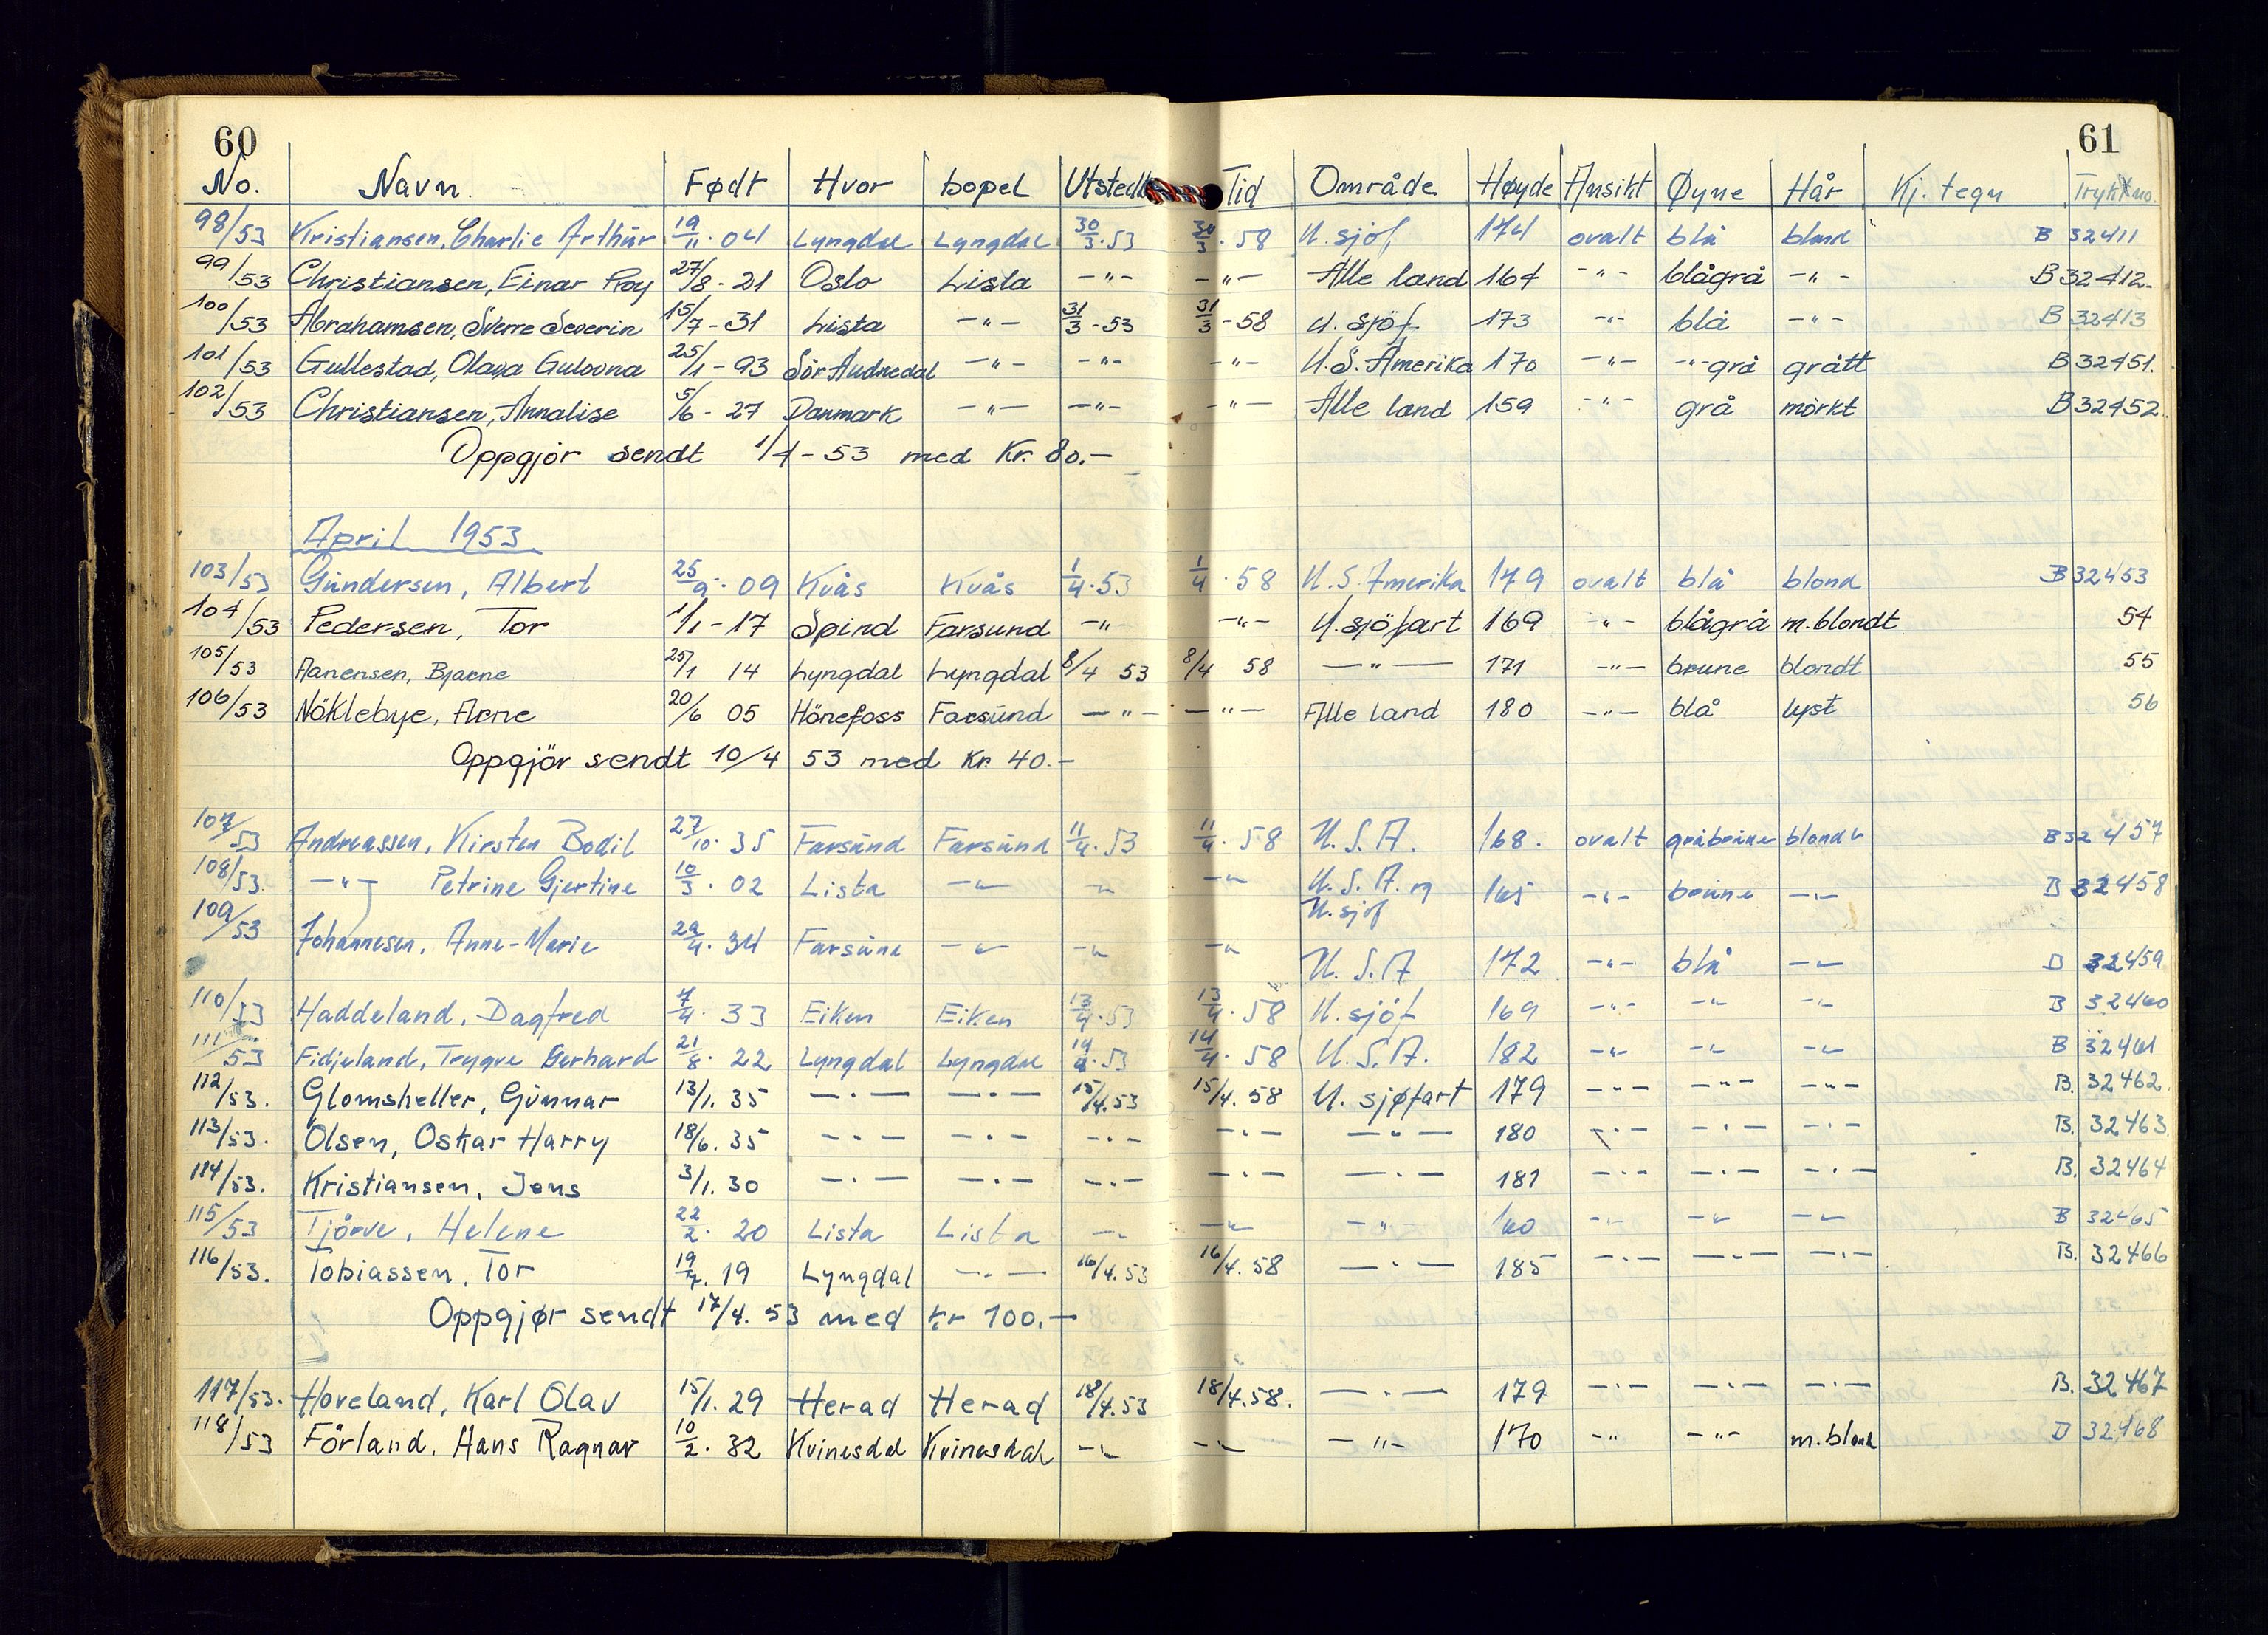 60 61
No. Navn. Født Hvor bopel Utstedt Tid Område Høyde Ansikt Øyne Hår Kj. tegn Trykk no.
98/53 Kristiansen, Charlie Arthur 19/11. 04 Lyngdal Lyngdal 30/3.53 30/3. 58 U. sjöf, 174 ovalt blå blond B 32411
99/53 Christiansen, Einar Roy 27/8 - 21 Oslo Lista -"- -"- Alle land 164 -"- blågrå -"- B 32412.
100/53 Abrahamsen, Sverre Severin 15/7 - 31 Lista -"- 31/3 - 53 31/3 - 58 U. sjöf 173 -"- blå -"- B 32413
101/53 Gullestad, Olava Gulovna 25/1 - 93 Sör Audnedal -"- -"- -"- U.S. Amerika 170 -"- -"- grå grått B 32451.
102/53 Christiansen, Annalise 5/6 - 27 Danmark -"- -"- -"- Alle land 159 -"- grå mörkt B 32452.
Oppgjör sendt 1/4 - 53 med Kr. 80.-
April 1953.
103/53 Gundersen, Albert 25/9. 09 Kvås Kvås 1/4.53 1/4. 58 U.S. Amerika 179 ovalt blå blond B 32453
104/53 Pedersen, Tor 1/1 - 17 Spind Farsund -"- -"- U. sjöfart 169 -"- blågrå m. blondt 54
105/53 Aanensen, Bjarne 25/1 14 Lyngdal Lyngdal 8/4 53 8/4 58 -"- 171 -"- brune blondt 55
106/53 Nöklebye, Arne 20/6 05 Hönefoss Farsund -"- -"- Alle land 180 -"- blå lyst 56
Oppgjör sendt 10/4 53 med Kr. 40.-
107/53 Andreassen, Kirsten Bodil 27/10. 35 Farsund Farsund 11/4.53 11/4. 58 U.S.A. 168. ovalt gråbrune blondt B 32457
108/53. -"- Petrine Gjertine 10/3. 02 Lista -"- -"- -"- U.S.A. og 165 -"- brune -"- B 32458
U. sjöf
109/53 Johannesen, Anne-Marie 29/4. 34 Farsund -"- -"- -"- U.S.A 172 -"- blå -"- B 32459
110/53 Haddeland, Dagfred 7/4. 33 Eiken Eiken 13/4.53 13/4. 58 U. sjöf 169 -"- -"- -"- B 32460
111/53 Fidjeland, Trygve Gerhard 21/8. 22 Lyngdal Lyngdal 14/4.53 14/4. 58 U.S.A. 182 -"- -"- -"- B 32461
112/53. Glomsheller, Gunnar 13/1. 35 -"- -"- 15/4.53 15/4. 58 U. sjøfart 179 -"- -"- -"- B. 32462.
113/53. Olsen, Oskar Harry 18/6. 35 -"- -"- -"- -"- -"- 180 -"- -"- -"- B. 32463
114/53. Kristiansen, Jens 3/1. 30 -"- -"- -"- -"- -"- 181 -"- -"- -"- B. 32464
115/53 Tjörve, Helene 22/2. 20 Lista Lista -"- -"- -"- 160 -"- -"- -"- B 32465
116/53. Tobiassen, Tor 19/7. 19 Lyngdal -"- 16/4.53 16/4. 58 -"- 185 -"- -"- -"- B. 32466
Oppgjør sendt 17/4. 53 med kr 100.-
117/53. Hoveland, Karl Olav 15/1. 29 Herad Herad 18/4.53 18/4.58. -"- 179 -"- -"- -"- B. 32467
118/53 Förland, Hans Ragnar 10/2. 32 Kvinesdal Kvinesdal -"- -"- -"- 170 -"- -"- m. blond B 32468